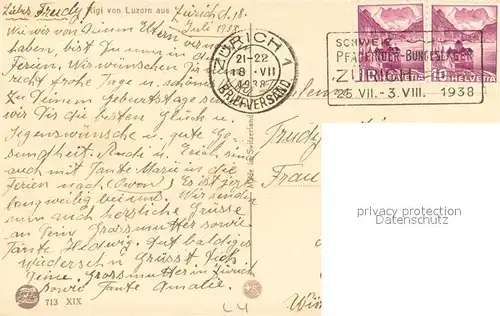 Liebe Trudy!
Rigi von Luzern aus
Zürich d. 18.
Juli 1938
Wie wir von Deinen Eltern vernommen
haben, bist Du nun in den
Ferien. Wir wünschen Dir
recht frohe Tage u. schönes
Zu Deinem Geburtstage senden
wir Dir die besten Glück u.
Segenswünsche u. gute Ge-
sundheit. Ruedi u. Erich sind
auch mit Tante Marie in die
Ferien nach (Owen) Es ist jetzt
langweilig bei uns. Wir senden
euch herzliche Grüsse
an Dein Grossmutter sowie
Tante Hedwig. Auf baldiges
Wiedersehn Grüsst Dich
Deine Grossmutter in Zürich
sowie Tante Amalie.
713 XIX
ZÜRICH 1
21-22
18. VII
1938
BRIEFVERSAND
SCHWEIZ.
PFADFINDER-BUNDESLAGER
ZÜRICH
25. VII. - 3. VIII. 1938
10 HELVETIA
Trudy
Frau
privacy protection
Datenschutz